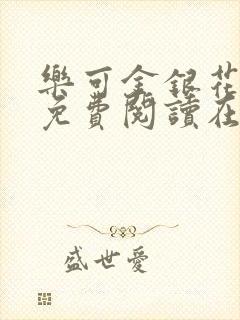 樂可金銀花
免費閱讀在
盛世愛